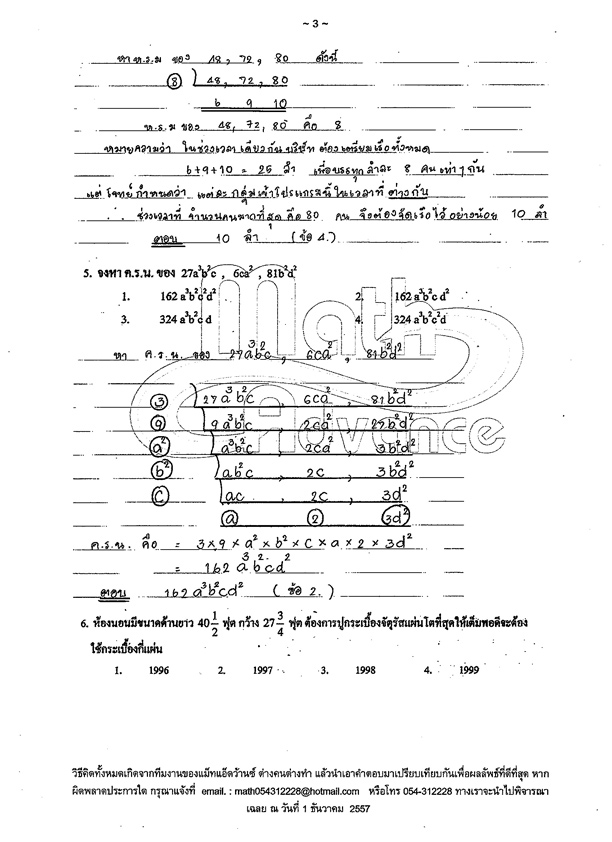 ~ 3 ~
หา ห.ร.ม ของ 48, 72, 80 ดังนี้
8 48, 72, 80
6 9 10
ห.ร.ม ของ 48, 72, 80 คือ 8
หมายความว่า ในช่วงเวลาเดียวกัน บริษัท ต้องเตรียมเรือทั้งหมด
6+9+10 = 25 ลำ เพื่อบรรทุกลำละ 8 คนเท่าๆกัน
แต่ โจทย์กำหนดว่า แต่ละกลุ่มเข้าโปรแกรมนี้ในเวลาที่ต่างกัน
∴ ช่วงเวลาที่ จำนวนคนมากที่สุด คือ 80 คน จึงต้องจัดเรือไว้อย่างน้อย 10 ลำ
ตอบ 10 ลำ (ข้อ 4.)
5. จงหา ค.ร.น. ของ 27a³b²c , 6ca² , 81b²d²
1. 162a³b²c²d² 2. 162a³b²cd²
3. 324a³b²cd 4. 324a³b²c²d
หา ค.ร.น. ของ 27a³b²c, 6ca², 81b²d²
3 27a³b²c, 6ca², 81b²d²
9 9a³b²c, 2ca², 27b²d²
a² a³b²c, 2ca², 3b²d²
b² ab²c, 2c, 3b²d²
c ac, 2c, 3d²
a 2 3d²
ค.ร.น. คือ = 3×9×a²×b²×c×a×2×3d²
= 162a³b²cd²
ตอบ 162a³b²cd² (ข้อ 2.)
6. ห้องนอนมีขนาดด้านยาว 40 1/2 ฟุต กว้าง 27 3/4 ฟุต ต้องการปูกระเบื้องจัตุรัสแผ่นโตที่สุดให้เต็มพอดีจะต้อง
ใช้กระเบื้องกี่แผ่น
1. 1996 2. 1997 3. 1998 4. 1999
Math
Advance
วิธีคิดทั้งหมดเกิดจากทีมงานของแม็ทแอ็ดว้านซ์ ต่างคนต่างทำ แล้วนำเอาคำตอบมาเปรียบเทียบกันเพื่อผลลัพธ์ที่ดีที่สุด หาก
ผิดพลาดประการใด กรุณาแจ้งที่ email. : math054312228@hotmail.com หรือโทร 054-312228 ทางเราจะนำไปพิจารณา
เฉลย ณ วันที่ 1 ธันวาคม 2557